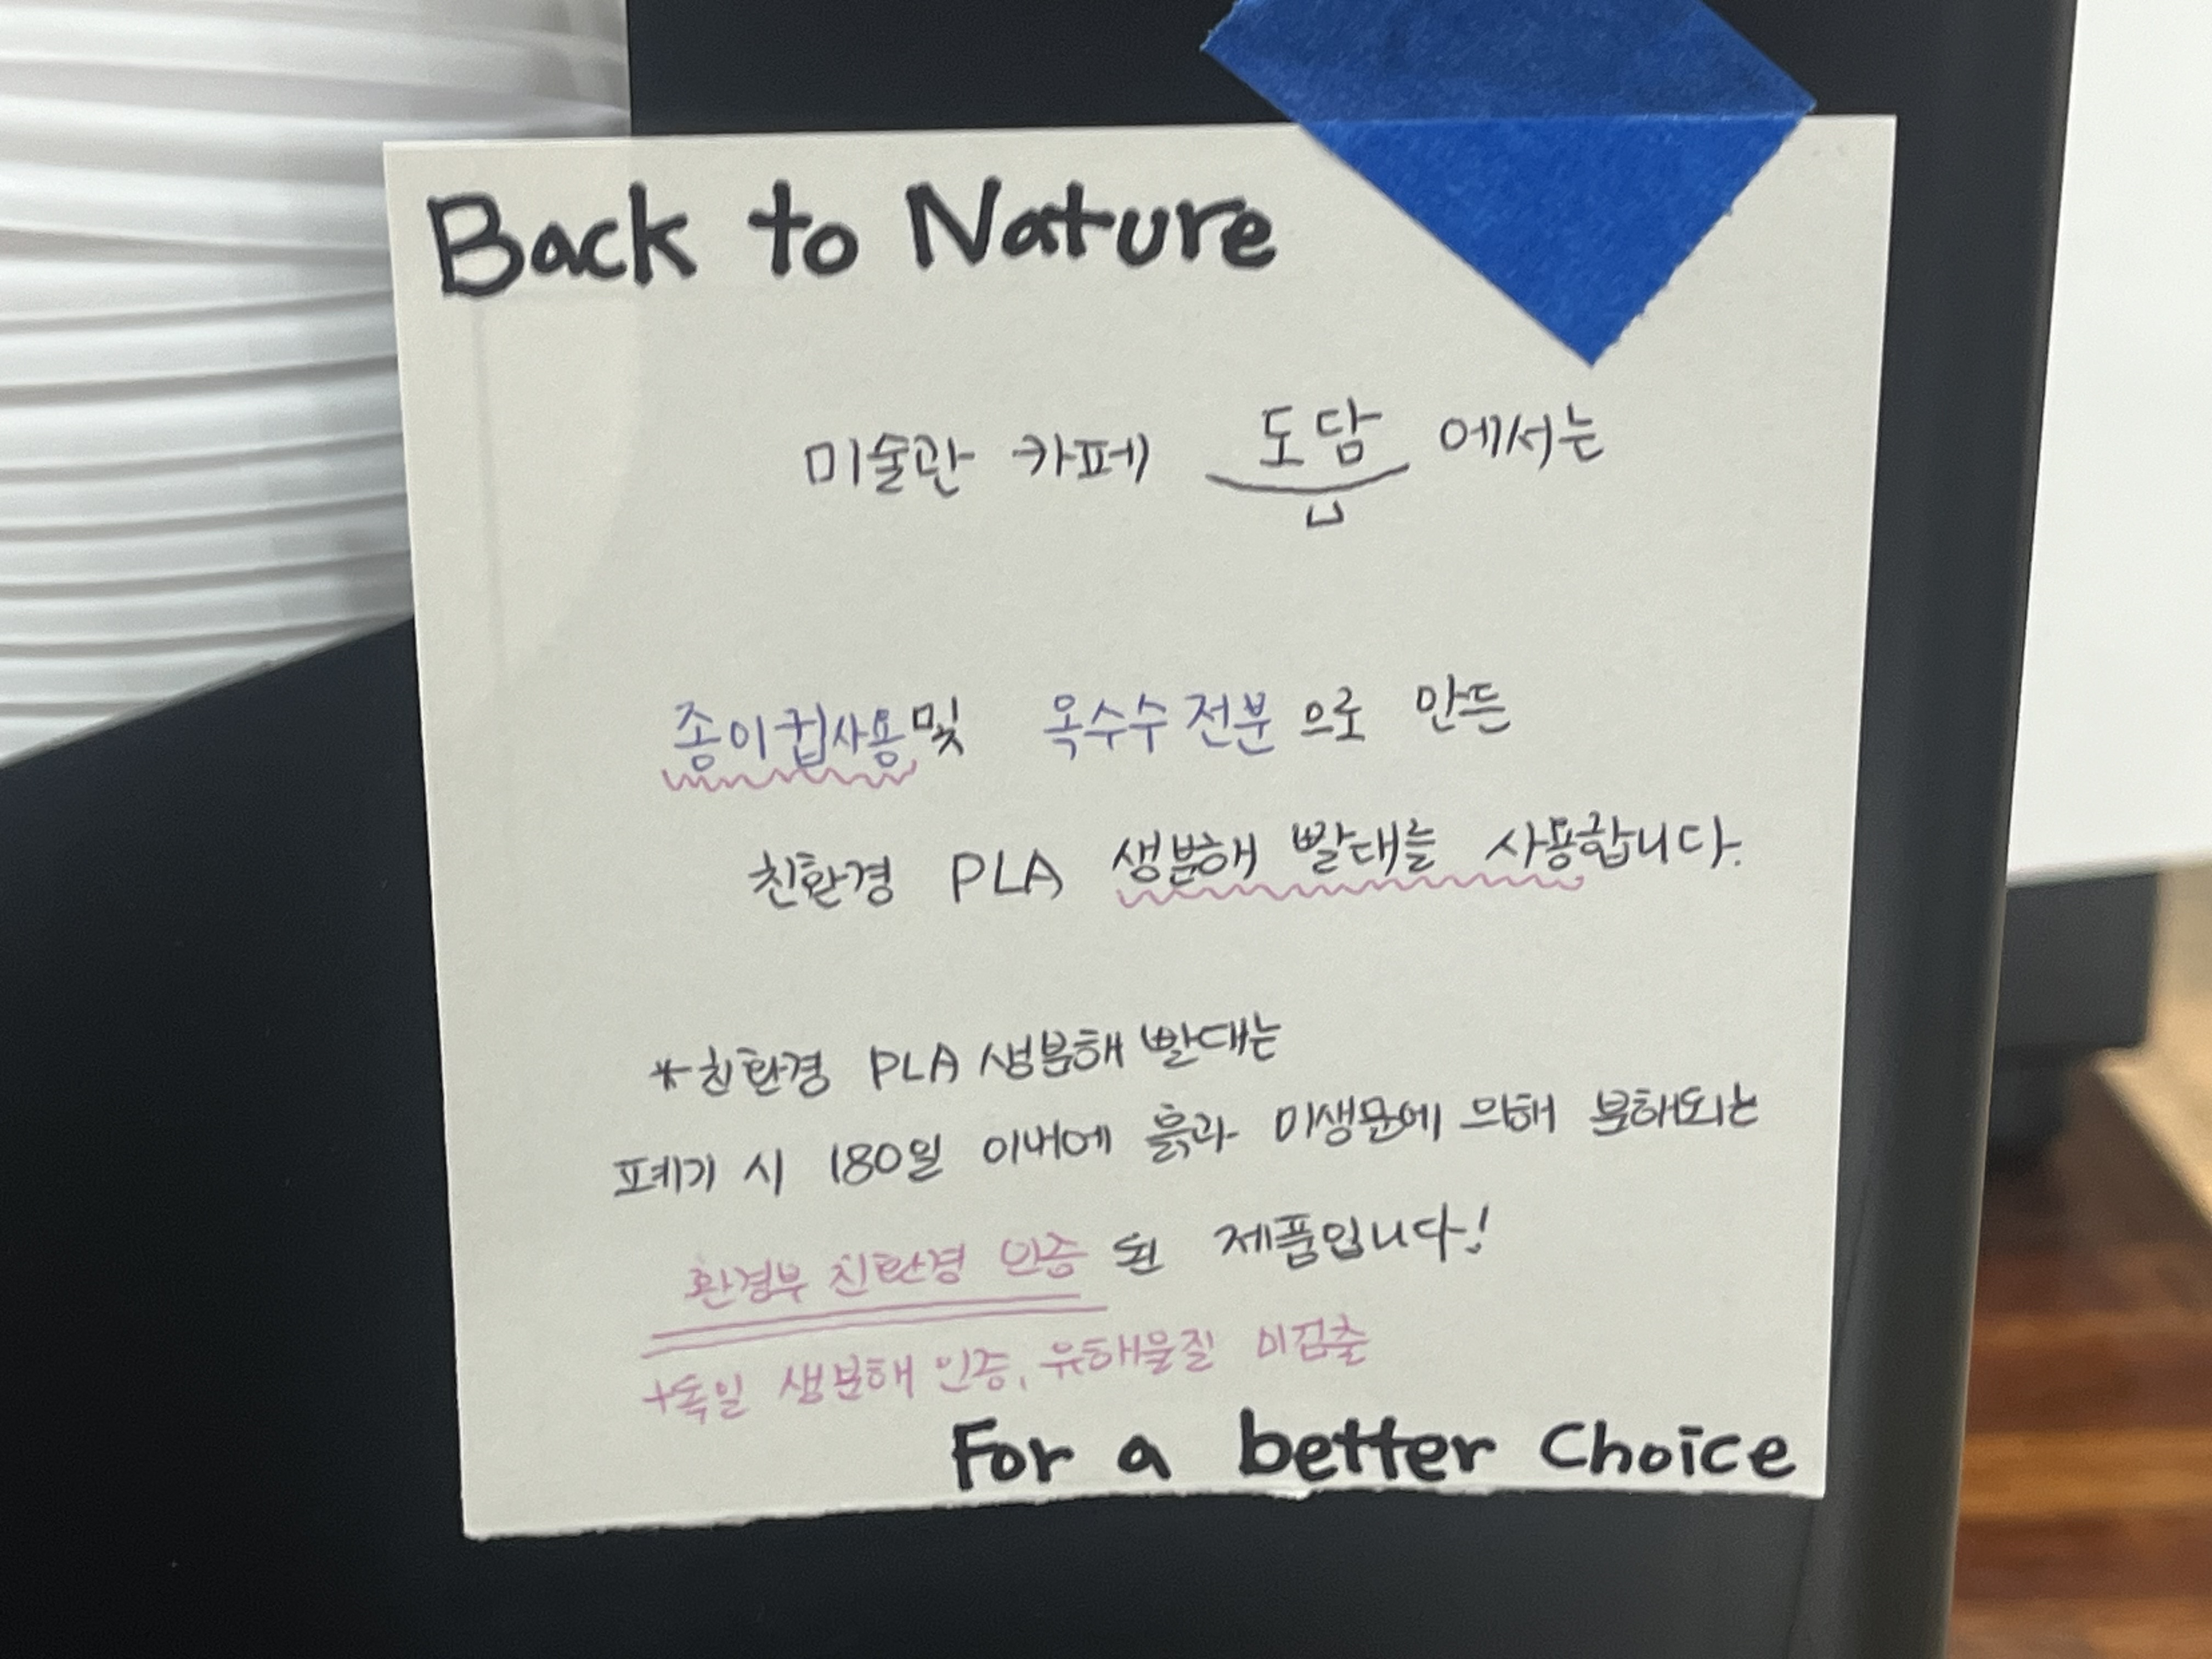 Back to Nature
미술관 카페 도담 에서는
종이컵사용 및 옥수수 전분으로 만든
친환경 PLA 생분해 빨대를 사용합니다.
*친환경 PLA 생분해 빨대는
폐기 시 180일 이내에 흙과 미생물에 의해 분해되는
환경부 친환경 인증 된 제품입니다!
+독일 생분해 인증, 유해물질 미검출
For a better Choice